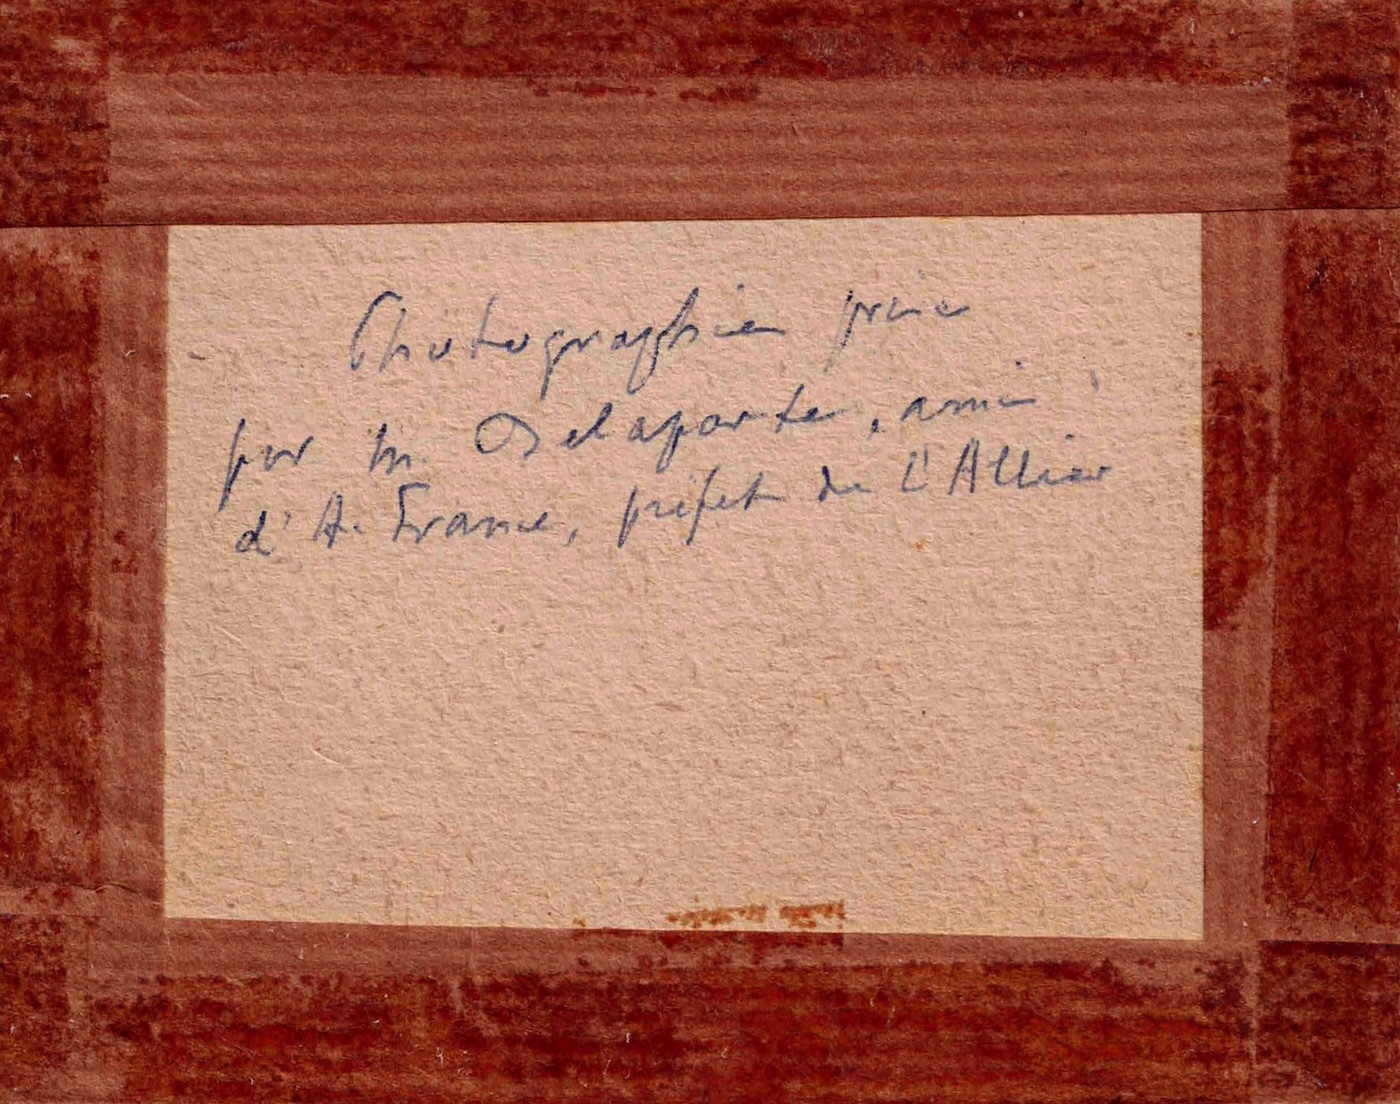 Photographie prise
par M. Delaporte, ami
d'A. France, préfet de l'Allier